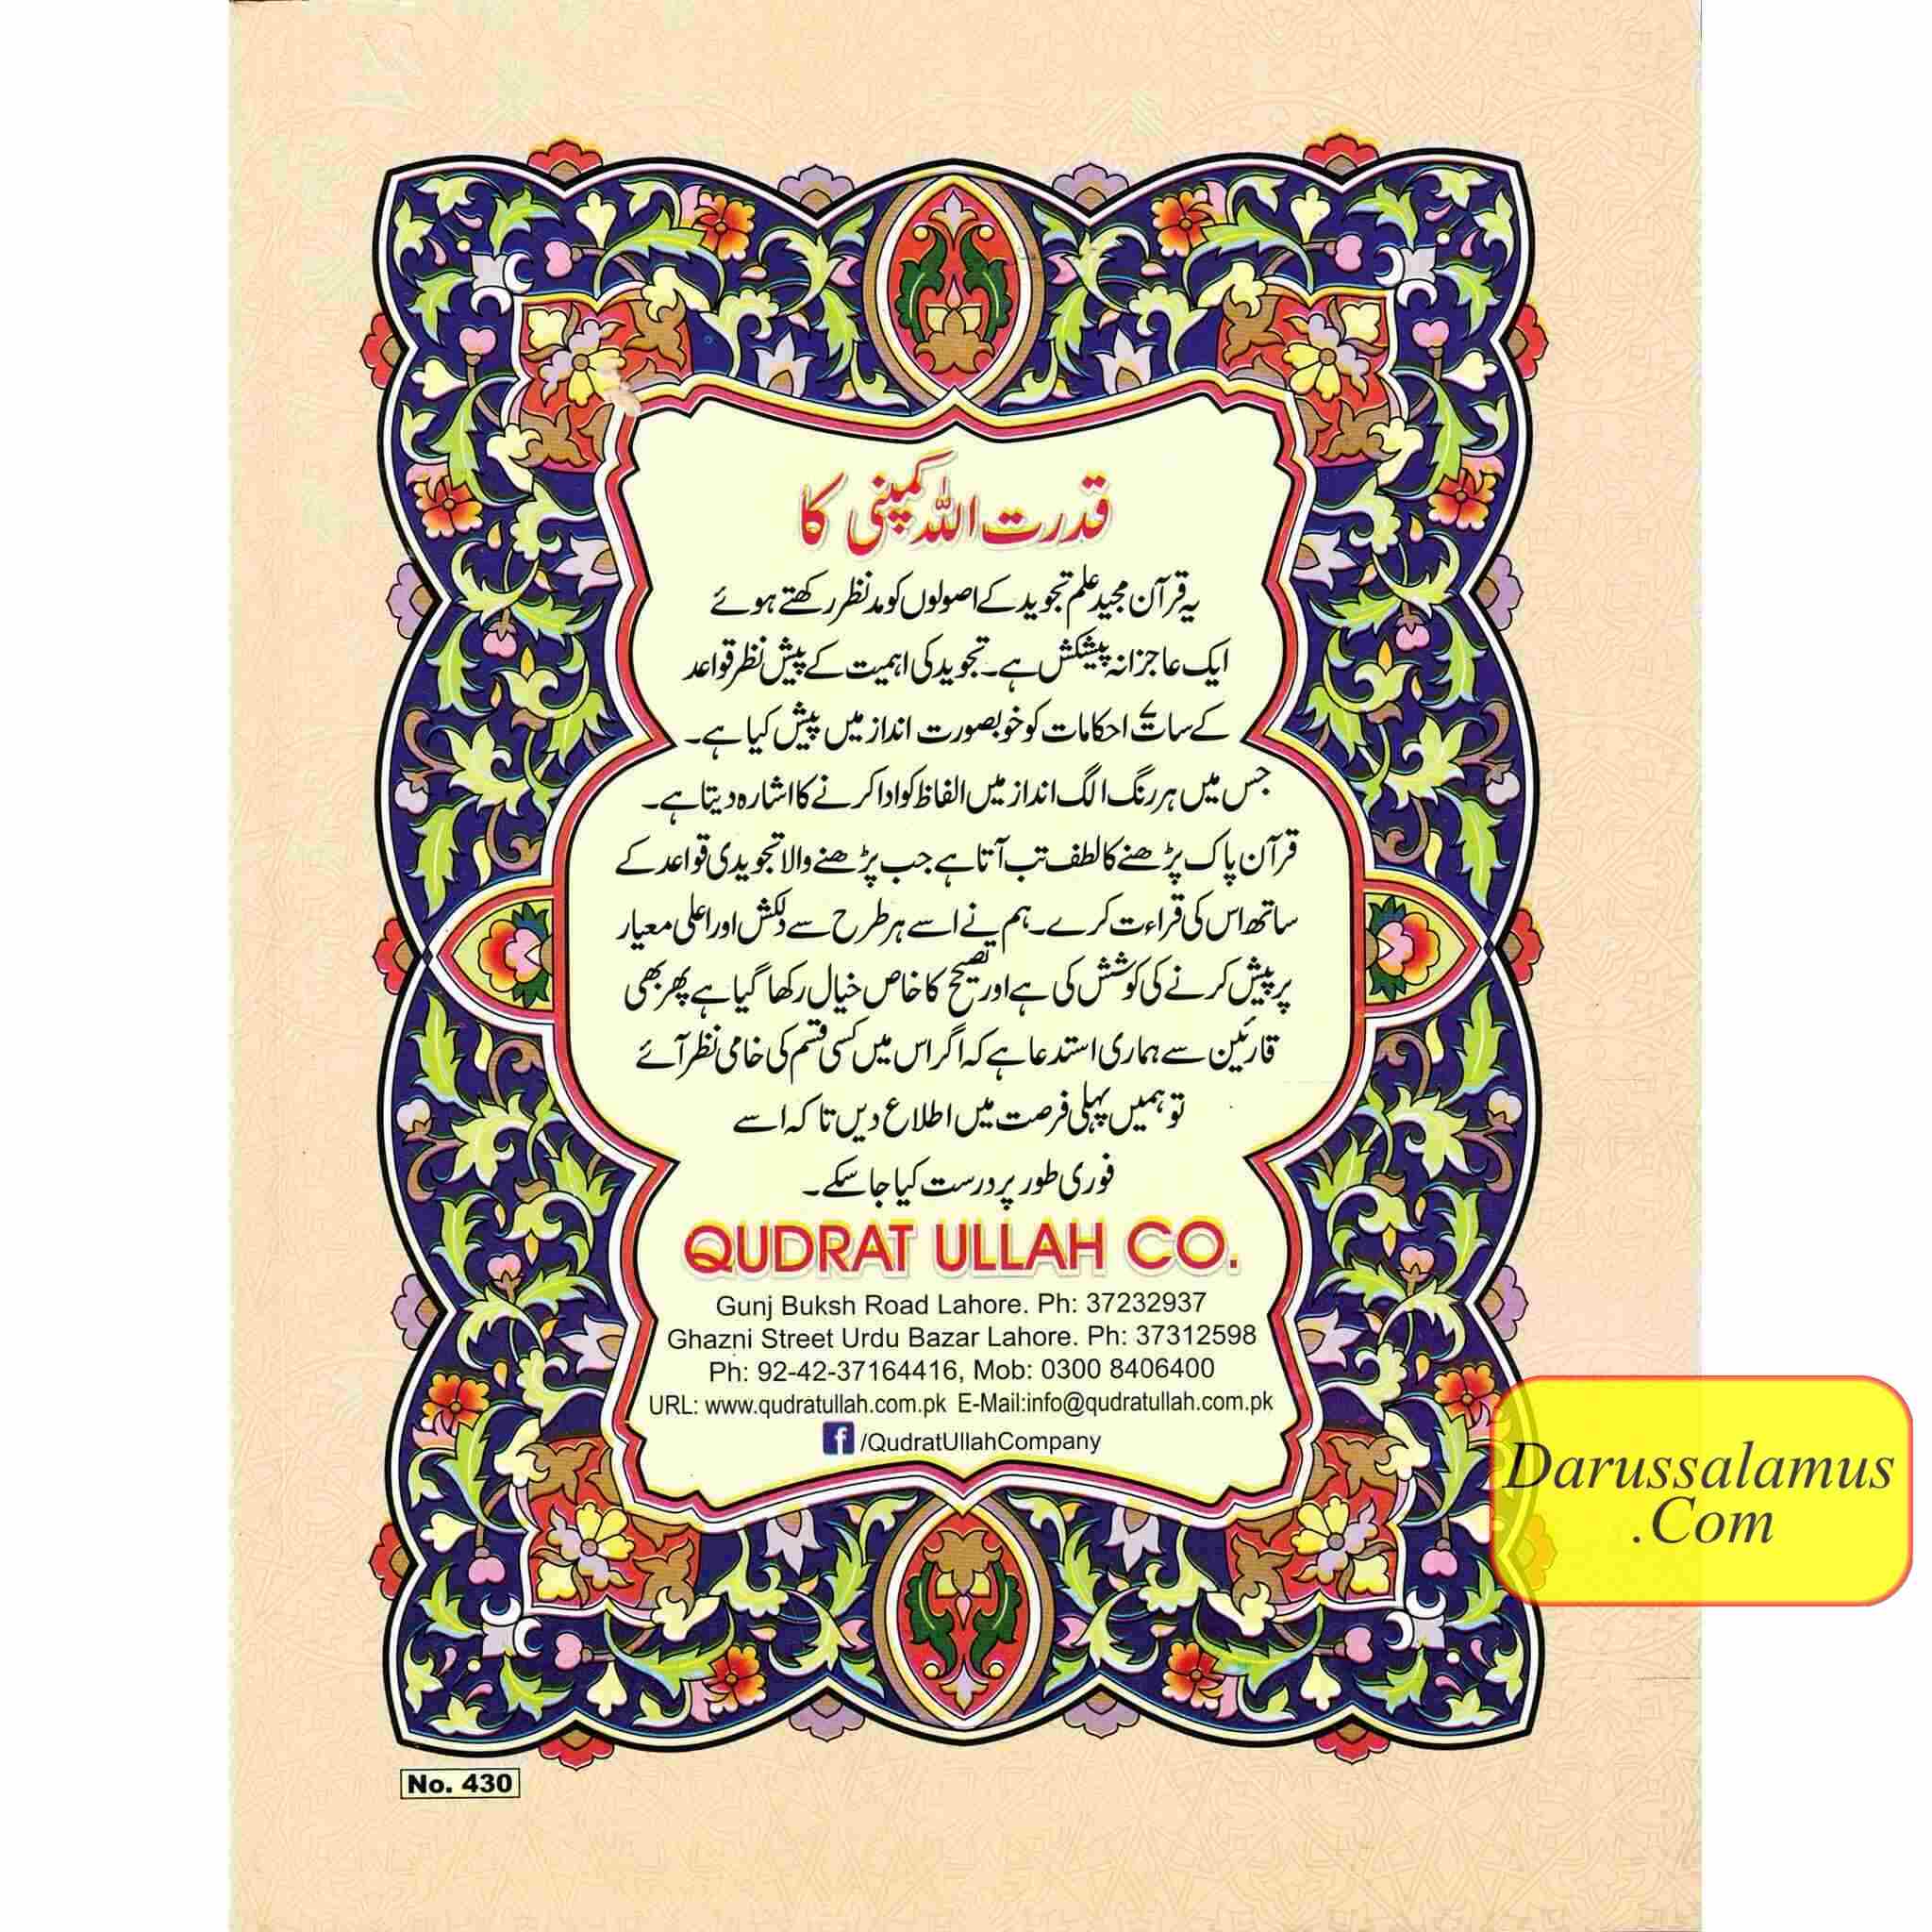 قدرت اللہ کمپنی کا
یہ قرآن مجید علم تجوید کے اصولوں کو مدنظر رکھتے ہوئے
ایک عاجزانہ پیشکش ہے۔ تجوید کی اہمیت کے پیش نظر قواعد
کے سات ۷ احکامات کو خوبصورت انداز میں پیش کیا ہے۔
جس میں ہر رنگ الگ انداز میں الفاظ کو ادا کرنے کا اشارہ دیتا ہے۔
قرآن پاک پڑھنے کا لطف تب آتا ہے جب پڑھنے والا تجویدی قواعد کے
ساتھ اس کی قراءت کرے۔ ہم نے اسے ہر طرح سے دلکش اور اعلی معیار
پر پیش کرنے کی کوشش کی ہے اور تصحیح کا خاص خیال رکھا گیا ہے پھر بھی
قارئین سے ہماری استدعا ہے کہ اگر اس میں کسی قسم کی خامی نظر آئے
تو ہمیں پہلی فرصت میں اطلاع دیں تا کہ اسے
فوری طور پر درست کیا جا سکے۔
QUDRAT ULLAH CO.
Gunj Buksh Road Lahore. Ph: 37232937
Ghazni Street Urdu Bazar Lahore. Ph: 37312598
Ph: 92-42-37164416, Mob: 0300 8406400
URL: www.qudratullah.com.pk E-Mail:info@qudratullah.com.pk
f /QudratUllahCompany
Darussalamus
.Com
No. 430